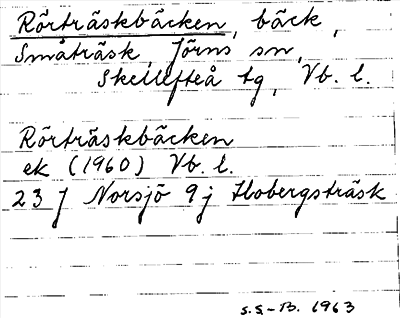 Rörträskbäcken, bäck,
Småträsk, Jörns sn,
Skellefteå tg, Vb. l.
Rörträskbäcken
ek (1960) Vb. l.
23 J Norsjö 9j Flobergsträsk
S.S.-B. 1963